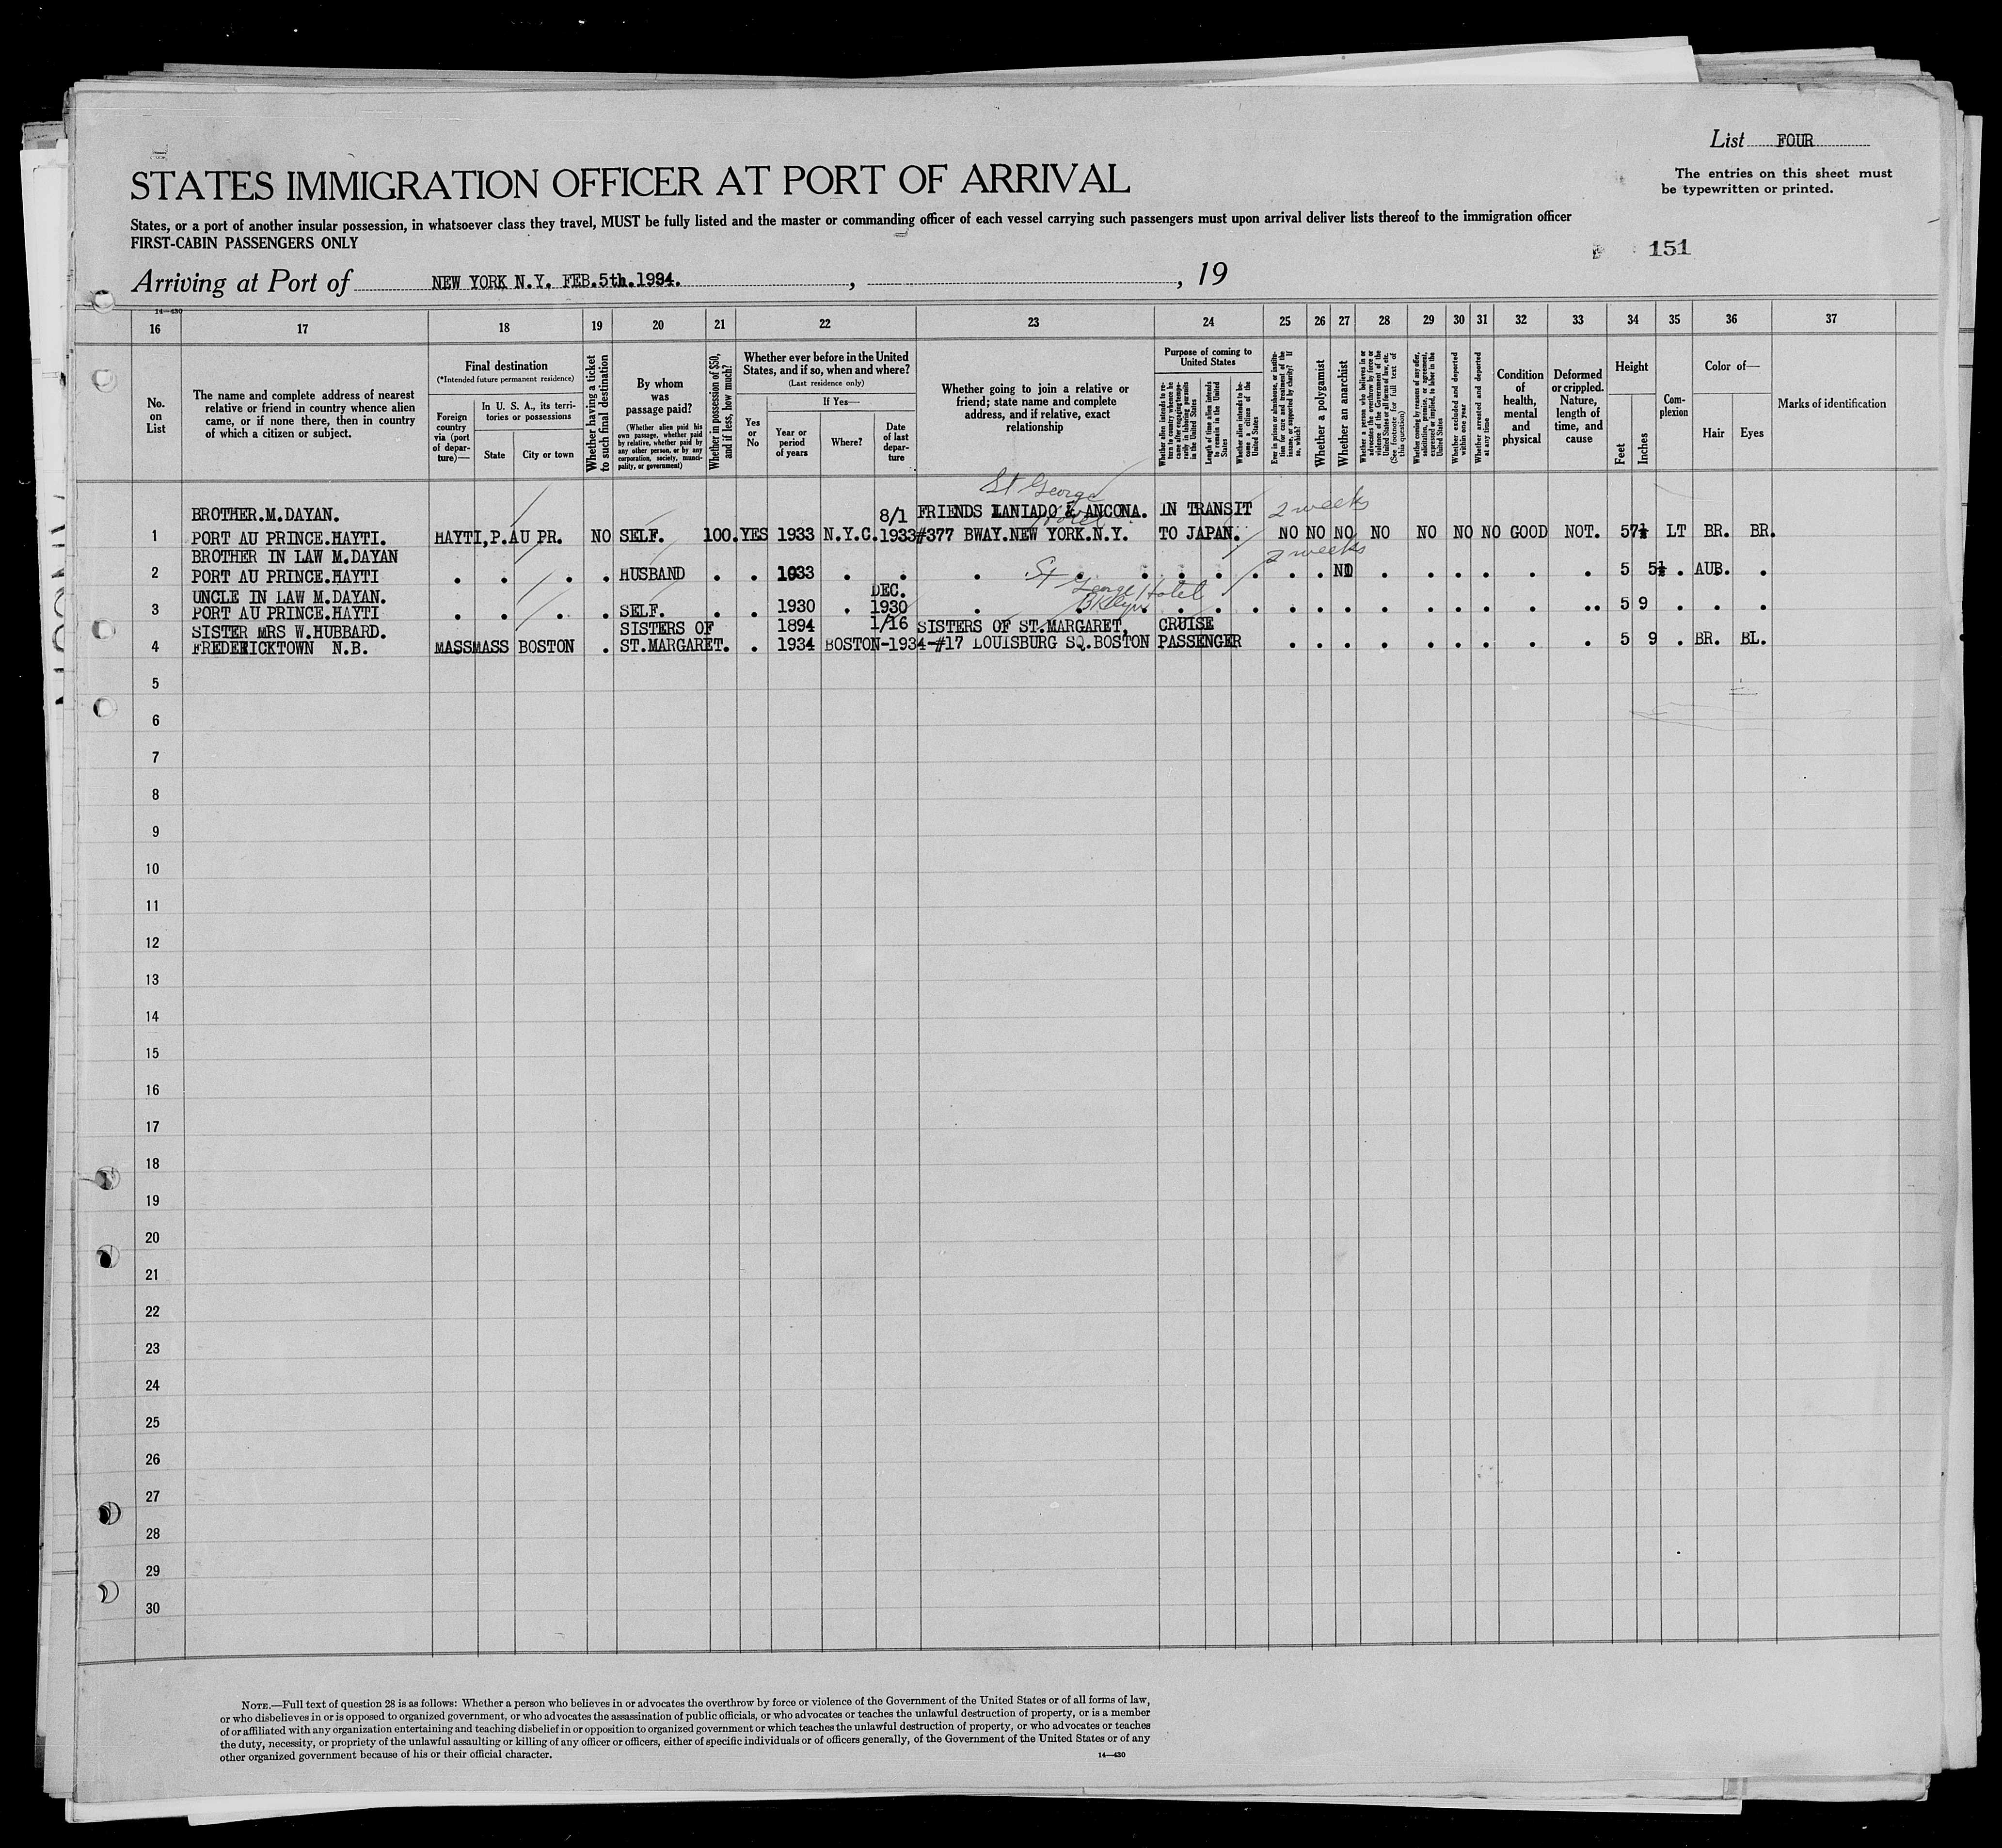 List FOUR
The entries on this sheet must
be typewritten or printed.
STATES IMMIGRATION OFFICER AT PORT OF ARRIVAL
States, or a port of another insular possession, in whatsoever class they travel, MUST be fully listed and the master or commanding officer of each vessel carrying such passengers must upon arrival deliver lists thereof to the immigration officer
FIRST-CABIN PASSENGERS ONLY
151
Arriving at Port of NEW YORK N.Y. FEB.5th.1934. , , 19
14—430
16 17 18 19 20 21 22 23 24 25 26 27 28 29 30 31 32 33 34 35 36 37
No.
on
List
The name and complete address of nearest
relative or friend in country whence alien
came, or if none there, then in country
of which a citizen or subject.
Final destination
(*Intended future permanent residence)
Foreign
country
via (port
of depar-
ture)—
In U. S. A., its terri-
tories or possessions
State
City or town
Whether having a ticket
to such final destination
By whom
was
passage paid?
(Whether alien paid his
own passage, whether paid
by relative, whether paid by
any other person, or by any
corporation, society, munici-
pality, or government)
Whether in possession of $50,
and if less, how much?
Whether ever before in the United
States, and if so, when and where?
(Last residence only)
Yes
or
No
If Yes—
Year or
period
of years
Where?
Date
of last
depar-
ture
Whether going to join a relative or
friend; state name and complete
address, and if relative, exact
relationship
Purpose of coming to
United States
Whether alien intends to re-
turn to country whence he
came after engaging tempo-
rarily in laboring pursuits
in the United States
Length of time alien intends
to remain in the United
States
Whether alien intends to be-
come a citizen of the
United States
Ever in prison or almshouse, or institu-
tion for care and treatment of the
insane, or supported by charity? If
so, which?
Whether a polygamist
Whether an anarchist
Whether a person who believes in or
advocates the overthrow by force or
violence of the Government of the
United States or all forms of law, etc.
(See footnote for full text of
this question)
Whether coming by reason of any offer,
solicitation, promise, or agreement,
expressed or implied, to labor in the
United States
Whether excluded and deported
within one year
Whether arrested and deported
at any time
Condition
of
health,
mental
and
physical
Deformed
or crippled.
Nature,
length of
time, and
cause
Height
Feet
Inches
Com-
plexion
Color of—
Hair
Eyes
Marks of identification
St George
Hotel
BROTHER.M.DAYAN. 8/1 FRIENDS LANIADO & ANCONA. IN TRANSIT 2 weeks
1 PORT AU PRINCE.HAYTI. HAYTI,P.AU PR. NO SELF. 100. YES 1933 N.Y.C. 1933 #377 BWAY.NEW YORK.N.Y. TO JAPAN. NO NO NO NO NO NO NO GOOD NOT. 5 7½ LT BR. BR.
BROTHER IN LAW M.DAYAN 2 weeks
2 PORT AU PRINCE.HAYTI . . . . HUSBAND . . 1933 . . . St . . . . . . . . NO . . . . . . 5 5½ . AUB. .
UNCLE IN LAW M.DAYAN. DEC. George Hotel
3 PORT AU PRINCE.HAYTI . . . . SELF. . . 1930 . 1930 . Bklyn . . . . . . . . . . . . . .. 5 9 . . .
SISTER MRS W.HUBBARD. SISTERS OF 1894 1/16 SISTERS OF ST.MARGARET, CRUISE
4 FREDERICKTOWN N.B. MASS MASS BOSTON . ST.MARGARET. . 1934 BOSTON-1934-#17 LOUISBURG SQ.BOSTON PASSENGER . . . . . . . . . 5 9 . BR. BL.
5
6
7
8
9
10
11
12
13
14
15
16
17
18
19
20
21
22
23
24
25
26
27
28
29
30
NOTE.—Full text of question 28 is as follows: Whether a person who believes in or advocates the overthrow by force or violence of the Government of the United States or of all forms of law,
or who disbelieves in or is opposed to organized government, or who advocates the assassination of public officials, or who advocates or teaches the unlawful destruction of property, or is a member
of or affiliated with any organization entertaining and teaching disbelief in or opposition to organized government or which teaches the unlawful destruction of property, or who advocates or teaches
the duty, necessity, or propriety of the unlawful assaulting or killing of any officer or officers, either of specific individuals or of officers generally, of the Government of the United States or of any
other organized government because of his or their official character.
14—430